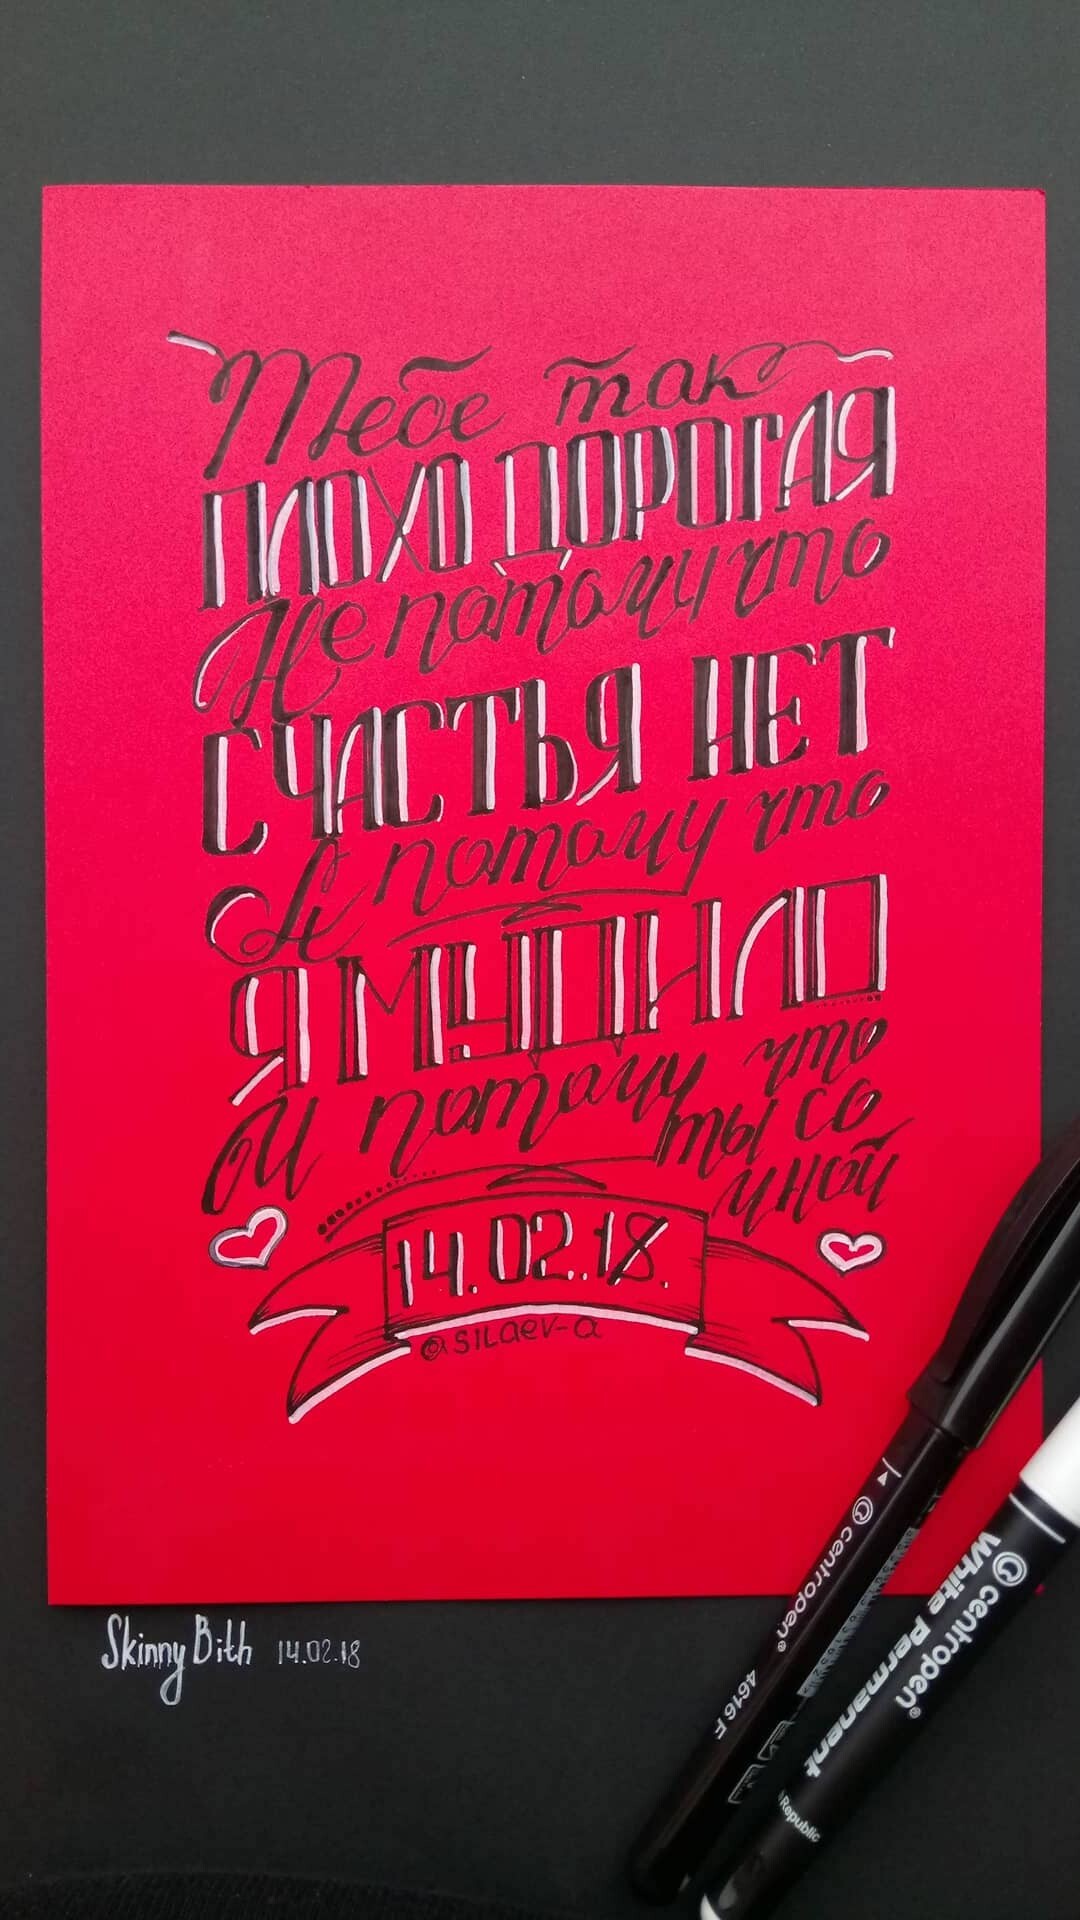 Тебе так
ПЛОХО ДОРОГАЯ
Не потому что
СЧАСТЬЯ НЕТ
А потому что
Я МУДИЛО
И потому что
ты со
мной
14.02.18.
@silaev-a
Skinny Bith 14.02.18
centropen
4616 F
centropen
White Permanent
Republic